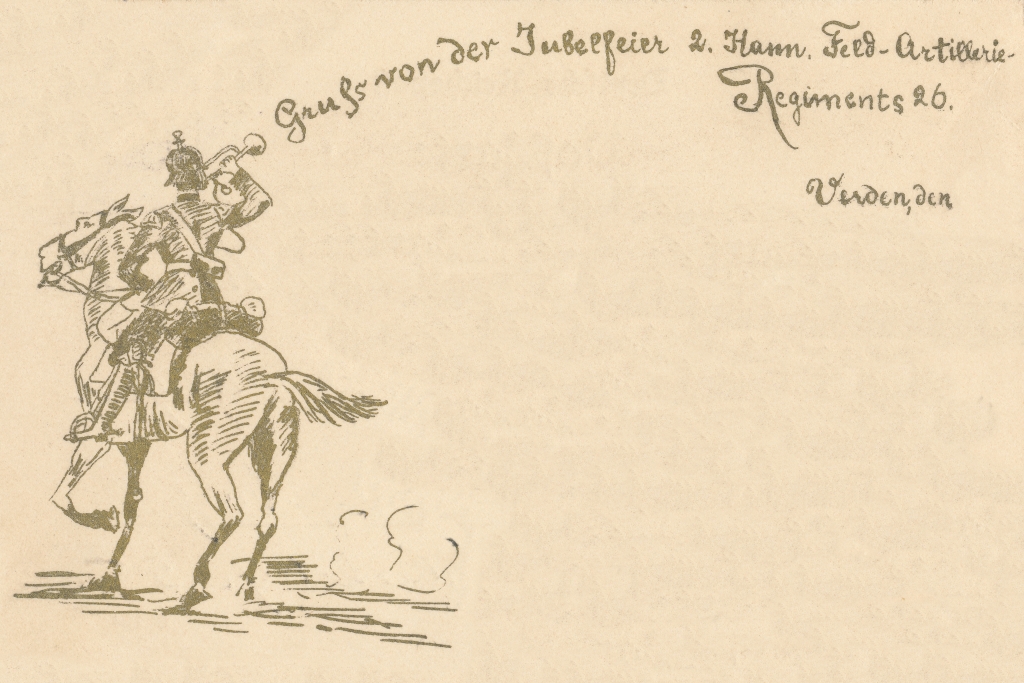 Gruß von der Jubelfeier 2. Hann. Feld-Artillerie-
Regiments 26.
Verden, den